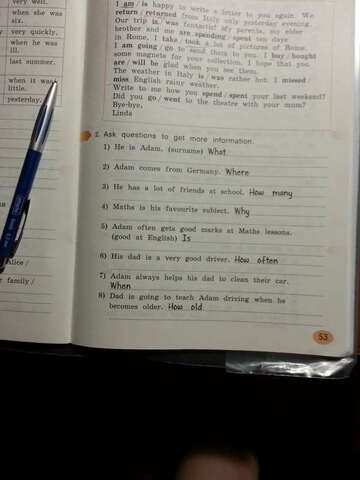 very well.
when she was
six.
very quickly.
when he was
ill.
last summer.
when it was
little.
yesterday.
I am / is happy to write a letter to you again. We
return / returned from Italy only yesterday evening.
Our trip is / was fantastic! My parents, my elder
brother and me are spending / spent ten days
in Rome. I take / took a lot of pictures of Rome.
I am going / go to send them to you. I buy / bought
some magnets for your collection. I hope that you
are / will be glad when you see them.
The weather in Italy is / was rather hot. I missed /
miss English rainy weather.
Write to me how you spend / spent your last weekend?
Did you go / went to the theatre with your mum?
Bye-bye,
Linda
2. Ask questions to get more information.
1) He is Adam. (surname) What
2) Adam comes from Germany. Where
3) He has a lot of friends at school. How many
4) Maths is his favourite subject. Why
5) Adam often gets good marks at Maths lessons.
(good at English) Is
6) His dad is a very good driver. How often
7) Adam always helps his dad to clean their car.
When
8) Dad is going to teach Adam driving when he
becomes older. How old
Alice /
r family /
53